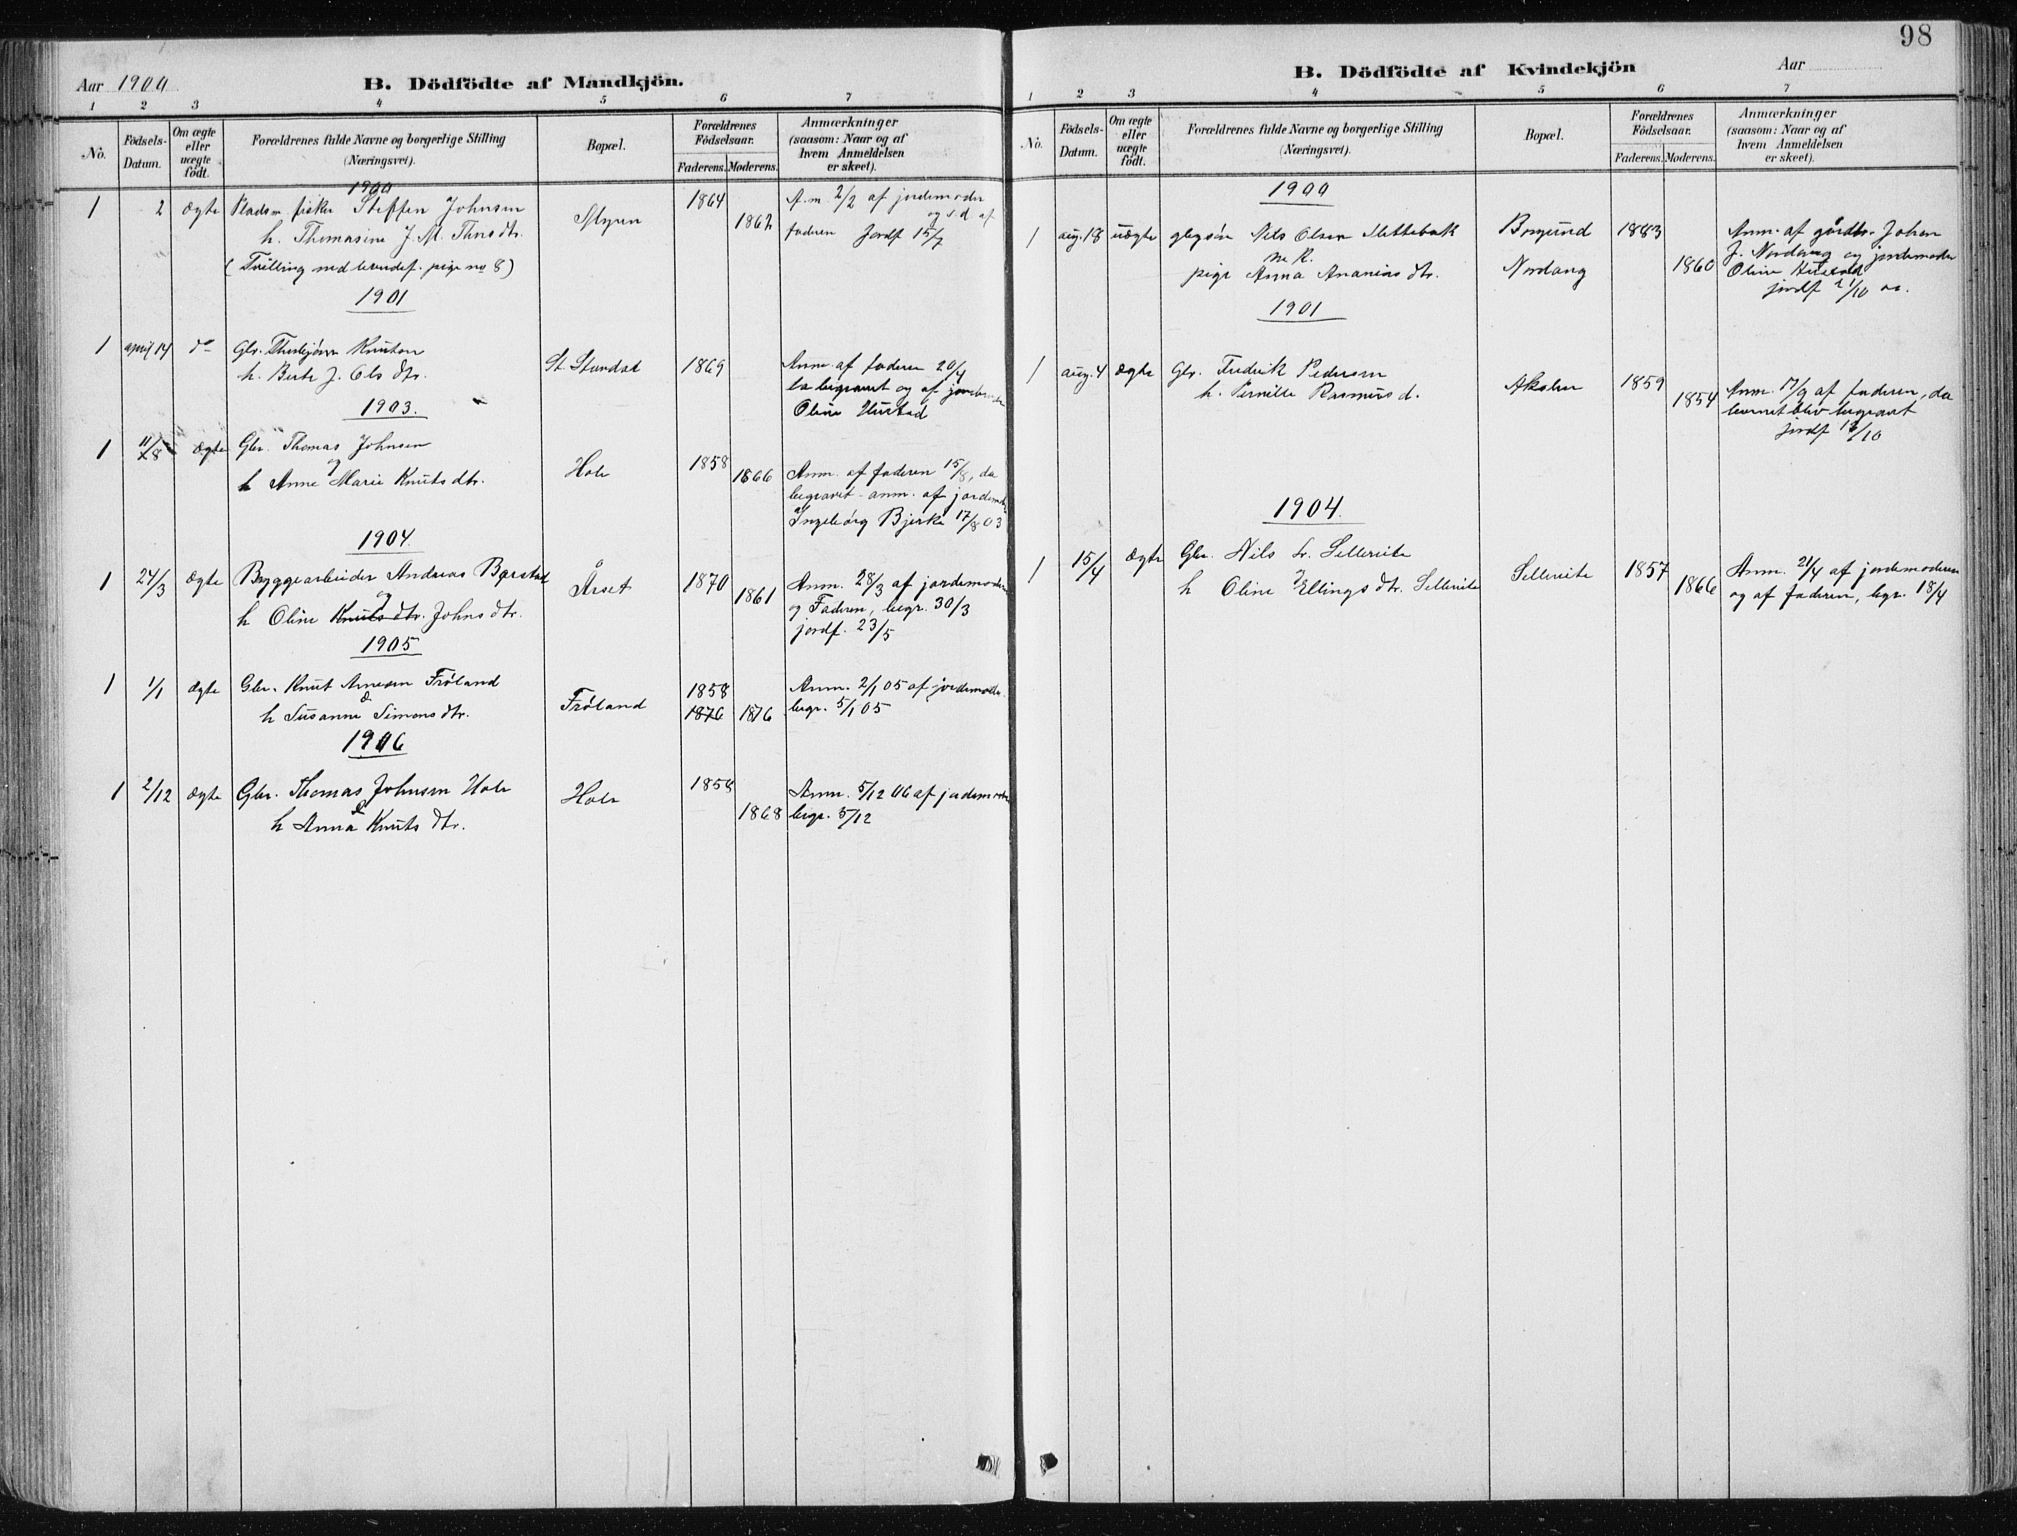 98
Aar 1900
B. Dödfödte af Mandkjön.
1 2 3 4 5 6 7
No.
Födsels-Datum.
Om ægte eller uægte födt.
Forældrenes fulde Navne og borgerlige Stilling
(Næringsvei).
Bopæl.
Forældrenes Födselsaar.
Faderens. Moderens.
Anmærkninger
(saasom: Naar og af
hvem Anmeldelsen
er skeet).
1900
1 2 ægte Pladsm. fisker Steffen Johnsen
h. Thomasine J. M.
(Tvilling med levendef. pige no 8)
Myren 1864 1862
A.m. 2/2 af jordemoder
og s d af
faderen Jordf 15/7
1901
1 april 14 do Gbr. Thorbjørn Knutsen
h. Berte J. Ols dtr.
St. Standal 1869
Anm. af faderen 20/4
da begravet og af jordemoder
Oline Hustad
1903.
1 11/8 ægte Gbr. Thomas Johnsen
og
h Anne Marie Knuts dtr.
Hole 1858 1866
Anm. af faderen 15/8, da
begravet - anm. af jordemoder
Ingeborg Bjerke 17/8 03
1904
1 24/3 ægte Bryggearbeider Andreas Børstad
og
h Oline Knuts dtr. Johns dtr.
Årset 1870 1861
Anm. 28/3 af jordemoder
og Faderen, begr. 30/3
jordf. 23/5
1905
1 1/1 ægte Gbr. Knut Arnesen Frøland
&
h Susanne Simons dtr.
Frøland 1858
1876 1876
Anm. 2/1 05 af jordemoder.
begr. 5/1 05
1906
1 2/12 ægte Gbr. Thomas Johnsen Hole
&
h Anna Knuts dtr.
Hole 1858 1868
Anm. 5/12 06 af jordemoder
begr. 5/12
B. Dödfödte af Kvindekjön
Aar
1 2 3 4 5 6 7
No.
Födsels-Datum.
Om ægte eller uægte födt.
Forældrenes fulde Navne og borgerlige Stilling
(Næringsvei).
Bopæl.
Forældrenes Födselsaar.
Faderens. Moderens.
Anmærkninger
(saasom: Naar og af
hvem Anmeldelsen
er skeet).
1900
1 aug. 18 uægte gbrsøn Nils Olsen Mittebak
pige Anna Ananias dtr.
Borgund
Nordang
1883 1860
Anm. af gårdbr. Johan
J. Nordang og jordemoder
Oline Hustad
jordf 21/10
1901
1 aug. 4 ægte Gbr. Fredrik Pedersen
h. Pernille Rasmus d.
Akslen 1859 1854
Anm. 17/9 af faderen, da
barnet blev begravet
jordf 13/10
1904.
1 15/4 ægte Gbr. Nils Sellereite
h Oline Ellings dtr. Sellereite
Sellereite 1857 1866
Anm. 21/4 af jordemoderen
og af faderen, begr. 18/4